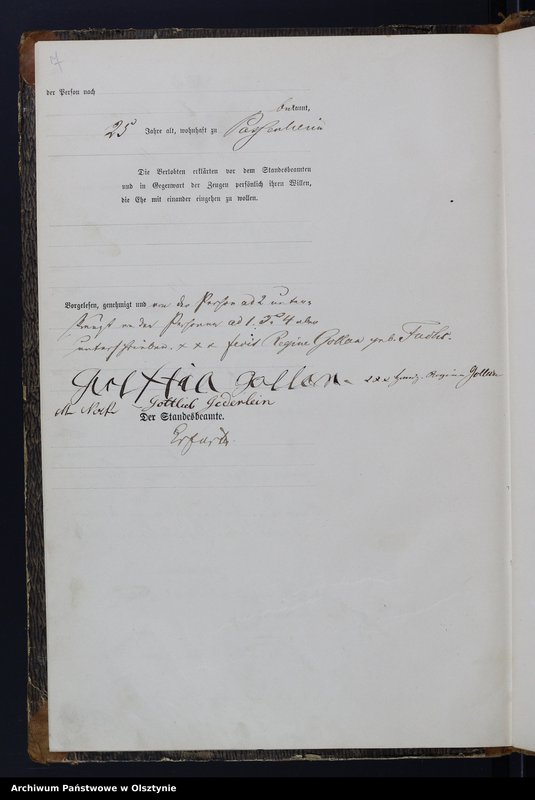 7
der Person nach
bekannt,
25 Jahre alt, wohnhaft zu Passenheim
Die Verlobten erklärten vor dem Standesbeamten
und in Gegenwart der Zeugen persönlich ihren Willen,
die Ehe mit einander eingehen zu wollen.
Vorgelesen, genehmigt und von der Person ad 2 unter-
kreuzt von den Personen ad 1. 3. 4 aber
unterschrieben. x x x Regine Gollan geb. Fuchs.
Gollan x x x Regine Gollan
Noelt Gottlieb Gederlein
Der Standesbeamte.
Erfurth